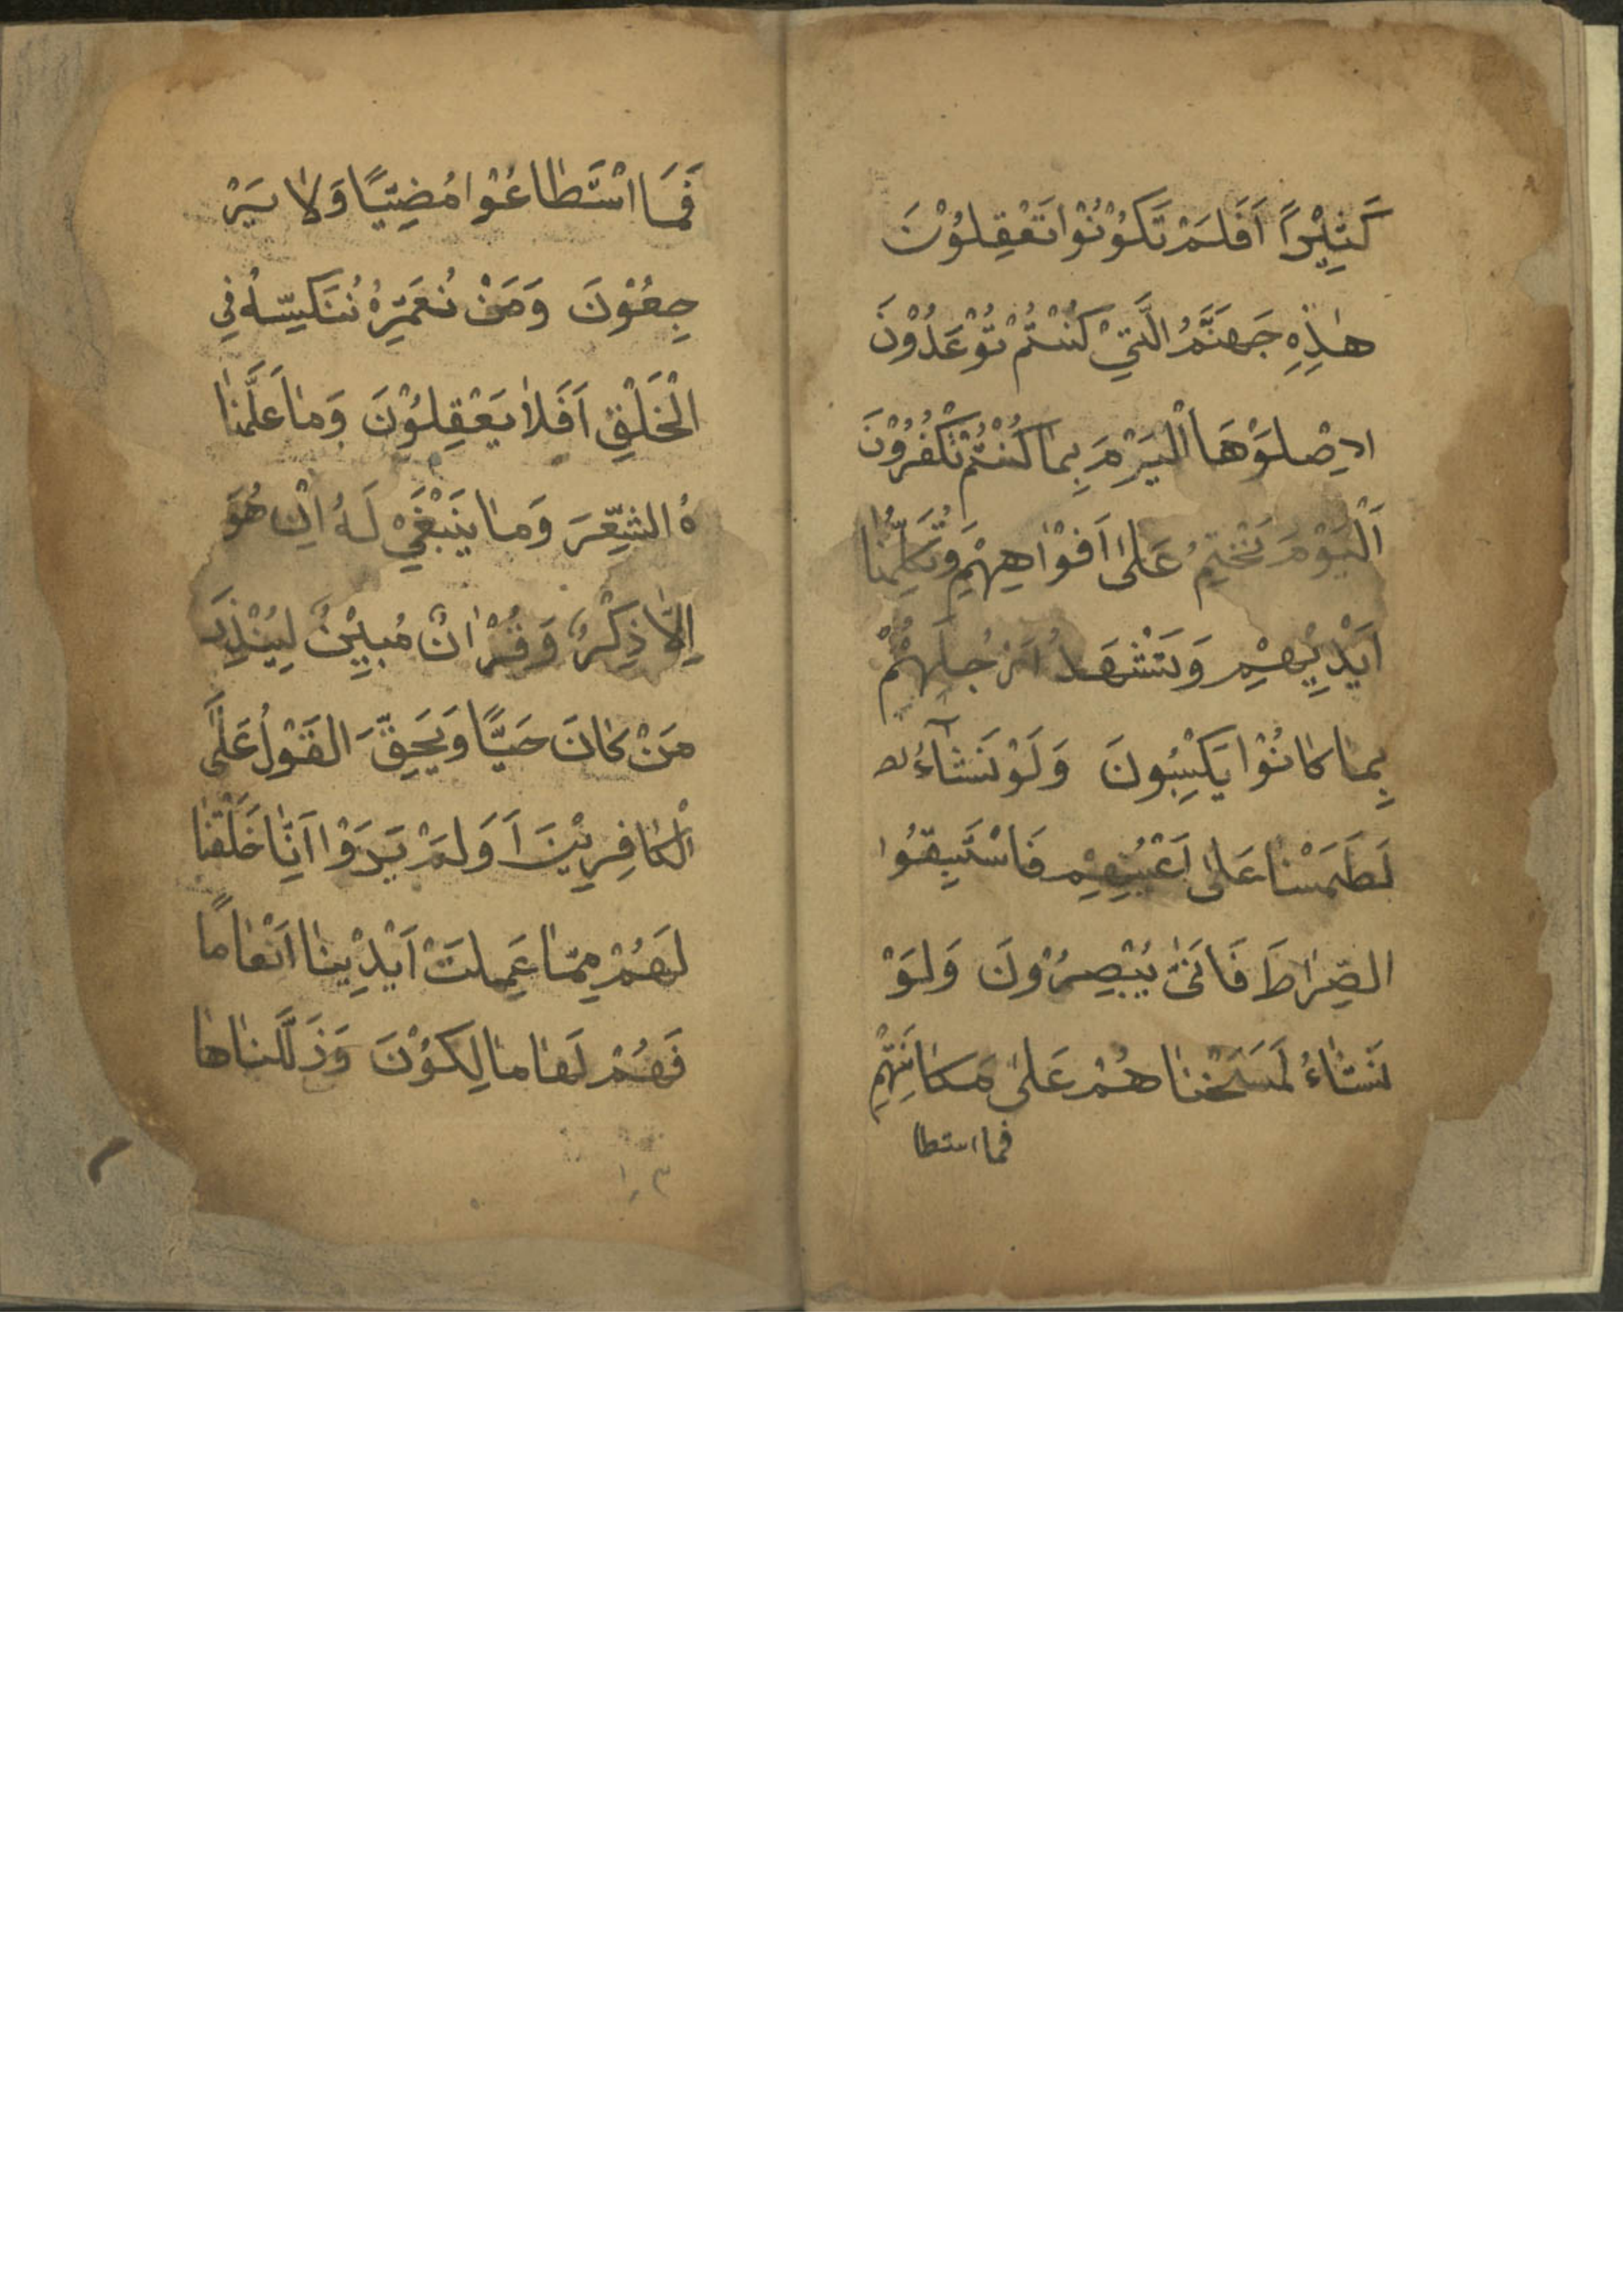 كَثِيْراً اَفَلَمْ تَكُوْنُوْا تَعْقِلُوْنَ
هٰذِهِ جَهَنَّمُ الَّتِيْ كُنْتُمْ تُوْعَدُوْنَ
اِصْلَوْهَا الْيَوْمَ بِمٰا كُنْتُمْ تَكْفُرُوْنَ
اَلْيَوْمَ نَخْتِمُ عَلىٰ اَفْوٰاهِهِمْ وَتُكَلِّمُنٰا
اَيْدِيْهِمْ وَتَشْهَدُ اَرْجُلُهُمْ
بِمٰا كٰانُوْا يَكْسِبُونَ وَلَوْ نَشٰآءُ
لَطَمَسْنٰا عَلىٰ اَعْيُنِهِمْ فَاسْتَبِقُوا
الصِّرٰاطَ فَاَنّىٰ يُبْصِرُوْنَ وَلَوْ
نَشٰاءُ لَمَسَخْنٰاهُمْ عَلىٰ مَكٰانَتِهِمْ
فما استطا
فَمَا اسْتَطٰاعُوْا مُضِيًّا وَلٰا يَرْ
جِعُوْنَ وَمَنْ نُعَمِّرْهُ نُنَكِّسْهُ فِي
الْخَلْقِ اَفَلاٰ يَعْقِلُوْنَ وَمٰا عَلَّمْنٰا
هُ الشِّعْرَ وَمٰا يَنْبَغِيْ لَهُ اِنْ هُوَ
اِلّٰا ذِكْرٌ وَقُرْاٰنٌ مُبِيْنٌ لِيُنْذِرَ
مَنْ كٰانَ حَيًّا وَيَحِقَّ الْقَوْلُ عَلَى
الْكٰافِرِيْنَ اَوَلَمْ يَرَوْا اَنّٰا خَلَقْنٰا
لَهُمْ مِمّٰا عَمِلَتْ اَيْدِيْنٰا اَنْعٰامًا
فَهُمْ لَهٰا مٰالِكُوْنَ وَذَلَّلْنٰاهٰا